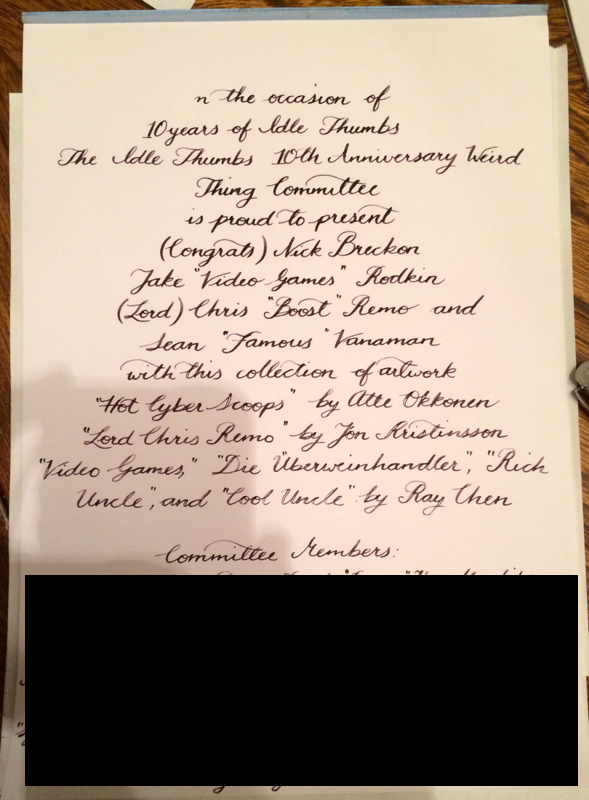 n the occasion of
10 years of Idle Thumbs
The Idle Thumbs 10th Anniversary Weird
Thing Committee
is proud to present
(Congrats) Nick Breckon
Jake "Video Games" Rodkin
(Lord) Chris "Boost" Remo and
Sean "Famous" Vanaman
with this collection of artwork
"Hot Cyber Scoops" by Atte Okkonen
"Lord Chris Remo" by Jon Kristinsson
"Video Games," "Die Überweinhandler", "Rich
Uncle", and "Cool Uncle" by Ray Chen
Committee Members: